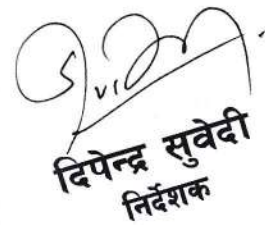 दिपेन्द्र सुवेदी
निर्देशक